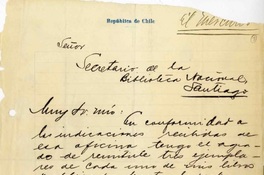 República de Chile
El Mercurio
Señor
Secretario de la
Biblioteca Nacional
Santiago
Muy Sr. mío: En conformidad a
las indicaciones recibidas de
esa oficina tengo el agra-
do de remitirle tres ejempla-
res de cada uno de mis libros